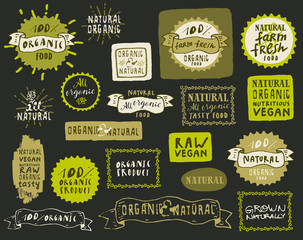 100%
ORGANIC
FOOD
NATURAL
ORGANIC
ORGANIC
& NATURAL
100%
farm fresh
FOOD
NATURAL
farm
fresh
FOOD
All
organic
100%
NATURAL
All
organic
food
NATURAL
All organic
food
NATURAL
ORGANIC
NUTRITIOUS
VEGAN
ORGANIC & NATURAL
RAW
VEGAN
100%
NATURAL
ORGANIC
NATURAL
VEGAN
NUTRITIOUS
RAW
ORGANIC
tasty
100%
ORGANIC
PRODUCT
ORGANIC
PRODUCT
NATURAL
100% ORGANIC
ORGANIC & NATURAL
GROWN
NATURALLY